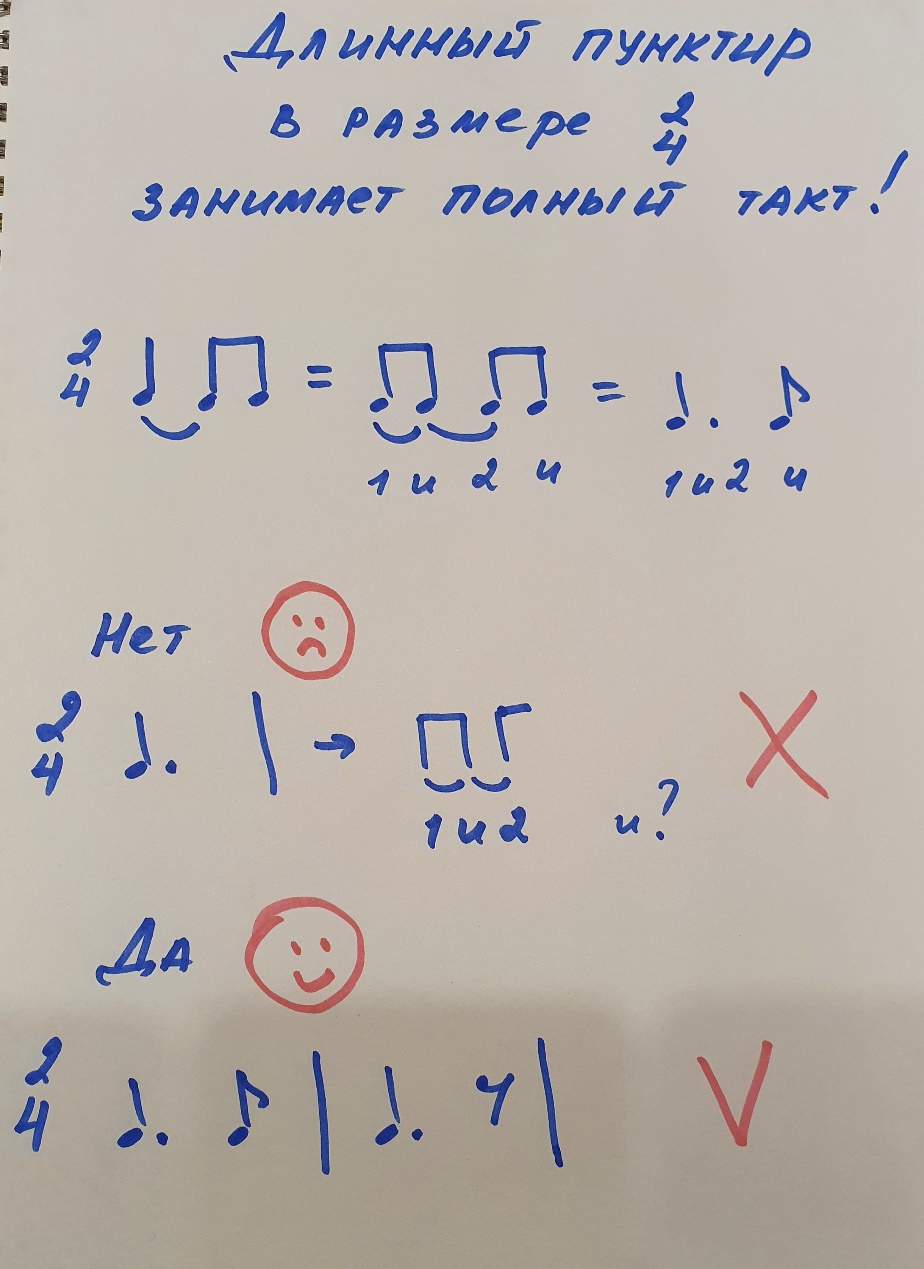 Длинный пунктир
в размере 2/4
занимает полный такт!
2/4 = =
1 и 2 и 1 и 2 и
Нет
2/4 → X
1 и 2 и?
Да
2/4 V